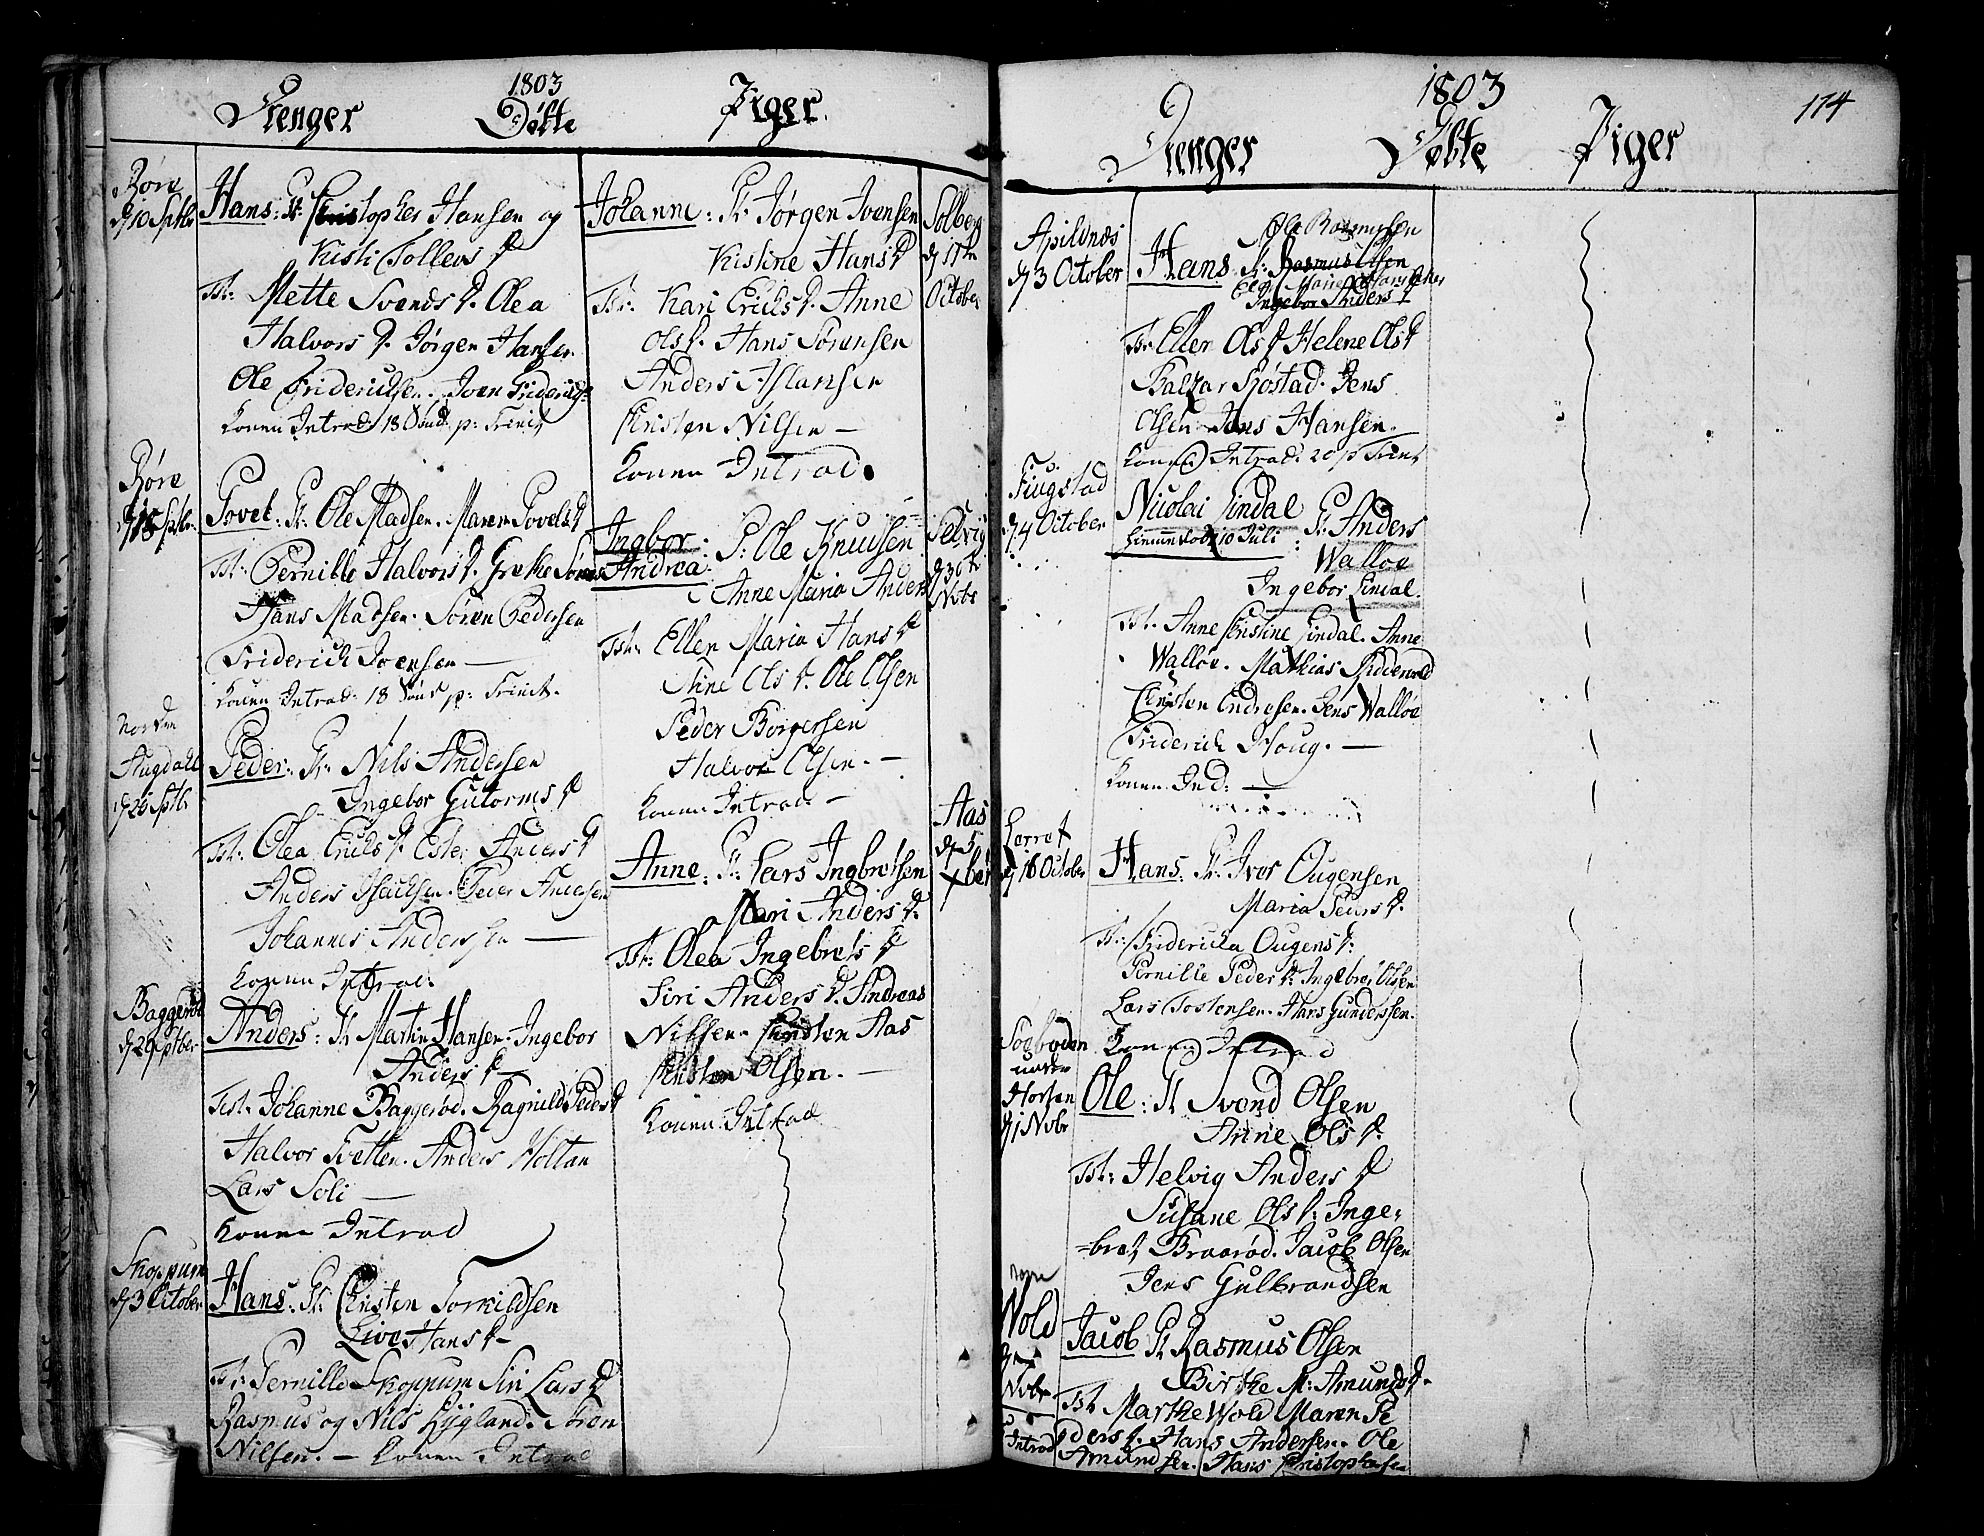 1803
Drenger Døbte Piger
Røre
d 10 Sptbr
Hans: Fr: Christopher Hansen og
Kisti Tollevs D
Tst: Mette Svends D. Olea
Halvors D. Jørgen Hansen
Ole Friderichsen. Joen Friderichs=
Konen Introd 18 Sønd p: Trinit
Røre
d 18 Sptbr
Povel: Fr: Ole Madsen. Maren Povels D
Tst: Pernille Halvors D. Grethe Sørens
Hans Madsen. Søren Pedersen
Friderich Joensen —
Konen Introd: 18 Sønd p: Trinit.
Norden
Augdahl
d 26 Sptbr
Peder: Fr: Nils Andersen
Ingebor Gutorms D
Tst: Olea Erichs D. Ester Anders D
Anders Isachsen. Peder Andersen
Johannes Andersen —
Konen Introd.
Baggerød
d 29 Sptber
Anders: Fr Martin Hansen. Ingebor
Anders D —
Test: Johanne Baggerød. Ragnild Peders D
Halvor Tvetten. Anders Holtan
Lars Soli —
Konen Introd
Skoppum
d 3 October
Hans: Fr: Christen Torkildsen
Live Hans D —
Tst: Pernille Skoppum Siri Lars D
Rasmus og Nils Rygland. Søren
Nilsen. — Konen Introd
Johanne: Fr: Jørgen Ivensen
Kistine Hans D
Tst: Kari Erichs D. Anne
Ols D. Hans Sørensen
Anders Aslamsen
Christen Nilsen —
Konen Introd.
Solberg
d 11te
October
Ingbor: F: Ole Knudsen
Andrea
Anne Maria Anders
Tst: Ellen Maria Hans D
Stine Ols D. Ole Olsen
Peder Borgersen
Halvor Olsen. —
Konen Introd —
Selvig
d 30te
Nvbr
Anne: Fr: Lars Ingbretsen
Mari Anders D.
Tst: Olea Ingebrets D
Siri Anders D. Andreas
Nilsen. Christen Aas
Christen Olsen. —
Konen Introd
Aas
d 5
Xber
1803 174
Drenger Døbte Piger
Apildnæs
d 3 October
Ole Rasmussen
Hans Fr: Rasmus Olsen
Maria
Ingebor Anders D
Tst: Ellen Ols D Helene Ols D
Baltzar Rostad. Jens
Olsen Jens Hansen.
Konen Introd: 20 p Trint
Fiugstad
d 4 October
Nicolai Lindal Fr: Anders
Hiemmedøbt 10 Juli : Walløe
Ingebor Lindal.
Tst. Anne Cristine Lindal. Anne
Walløe. Mathias Ridderwold
Christen Endresen. Jens Walløe
Friderich Houg. —
Konen Ind: —
d 16 October
Hans: Fr: Iver Ougensen
Maria Peders D.
Tst: Fridericha Ougens D:
Pernille Peders D: Ingebret Olsen
Lars Tostensen. Hans Gundersen.
Konen Introd
Søeboden
under
Horten
d 1 Nvbr
Ole: Fr Svend Olsen
Anne Ols D.
Tst: Helvig Anders D
Susane Ols D: Inge-
=bret Braarød. Jacob Olsen
Jens Gulbrandsen
Wold
Nvbr
Introd
Jacob Fr Rasmus Olsen
Birthe M: Amunds D.
Tst Marthe Wold Maren Pe
ders D. Hans Andersen. Ole
Amundsen. Hans Christophersen